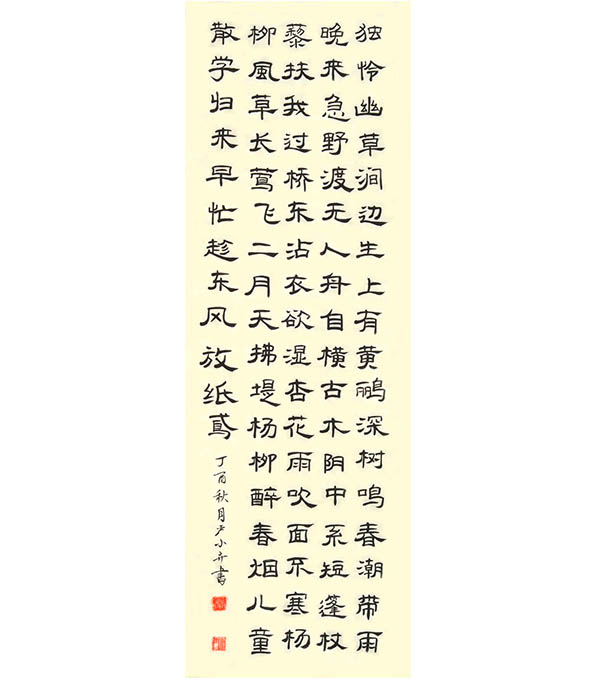 独怜幽草涧边生上有黄鹂深树鸣春潮帶雨
晚来急野渡无人舟自横古木阴中系短蓬杖
藜扶我过桥东沾衣欲湿杏花雨吹面不寒杨
柳風草长莺飞二月天拂堤杨柳醉春烟儿童
散学归来早忙趁东风放纸鸢
丁酉秋月小書